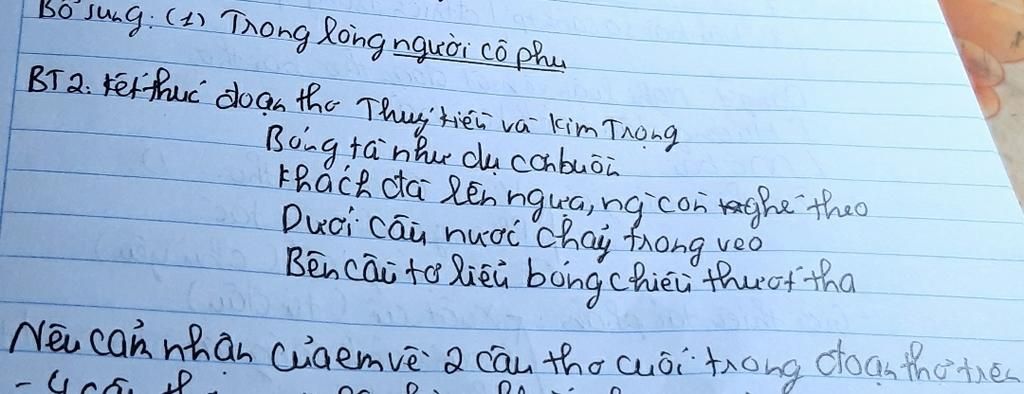 Bổ sung: (1) Trong lòng người cô phu
BT2. Kết thúc đoạn thơ Thuý Kiều và Kim Trọng
Bóng tà như dục cơn buồn
Khách đà lên ngựa, ng còn nghé theo
Dưới cầu nước chảy trong veo
Bên cầu tơ liễu bóng chiều thướt tha
Nêu cảm nhận của em về 2 câu thơ cuối trong đoạn thơ trên
- 4 câu